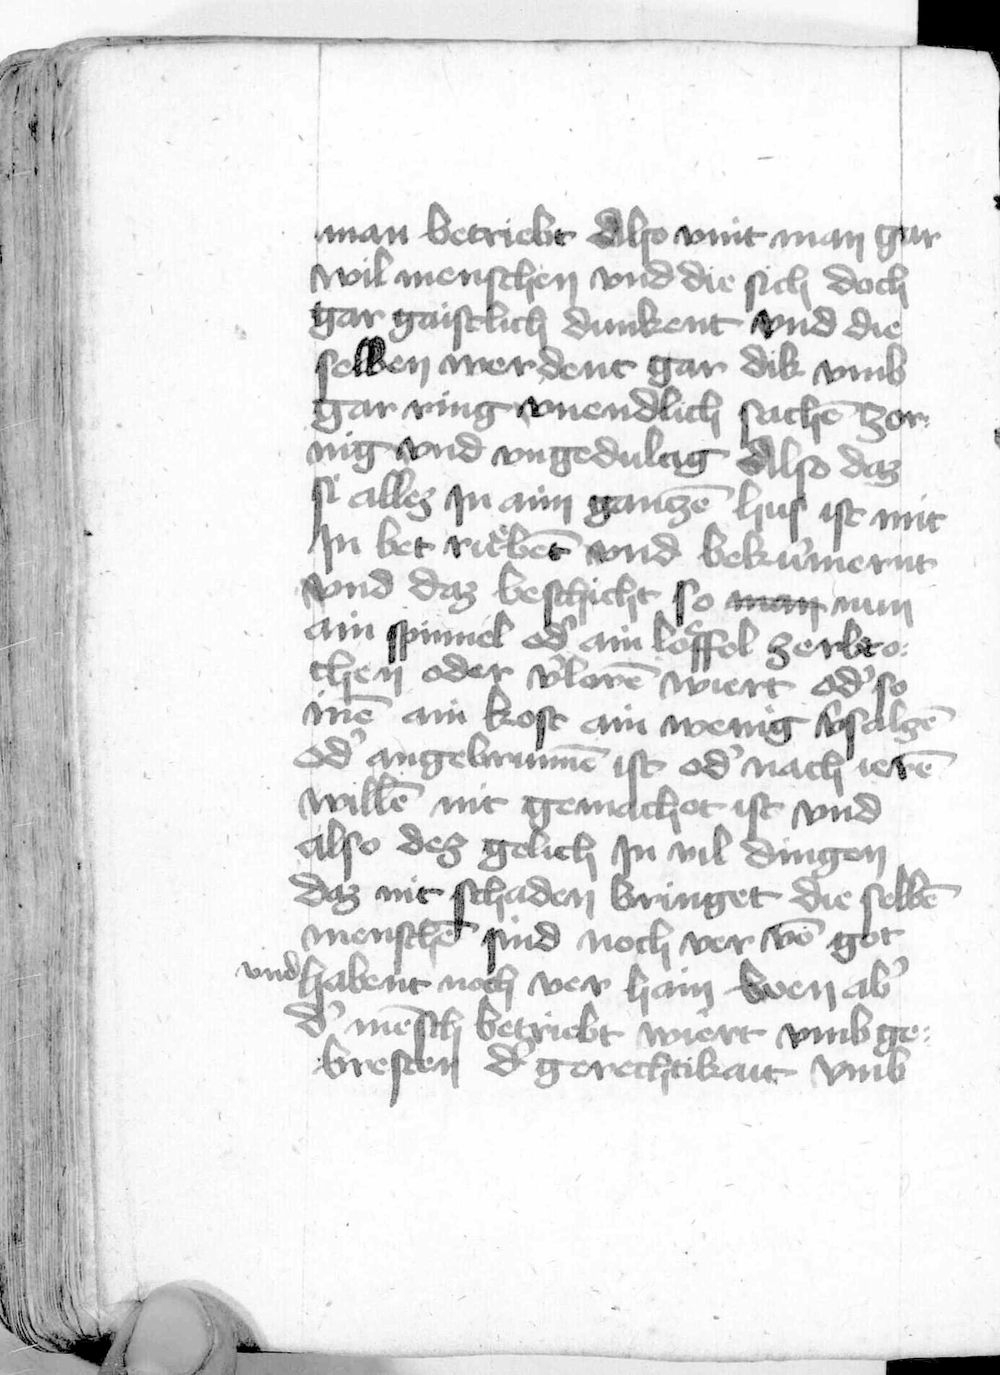 man betriebt Also vint man gar
wil menschen vnd die sich doch
gar gaistlich dunkent vnd die
selben werdent gar dik vmb
gar ring vnendlich sachē zor:
nig vnd vngedultig Also daz
si allez In aim ganczē hus ist mit
In bet riebēt vnd bekúmernt
vnd daz beschicht so man nun
ain spinnel od' ain loͤffel zerbro:
chen oder v'lorē wiert od' so
inē ain kost ain wenig v'salczē
od' angebrunnē ist od' nach ierē
willē nit gemachet ist vnd
also dez gelich In vil dingen
daz nit schaden bringet die selbē
menschē sind noch ver vō got
vnd habent noch ver haim wen ab'
d' mēsch betriebt wiert vmb ge:
bresten d' gerechtikait vmb